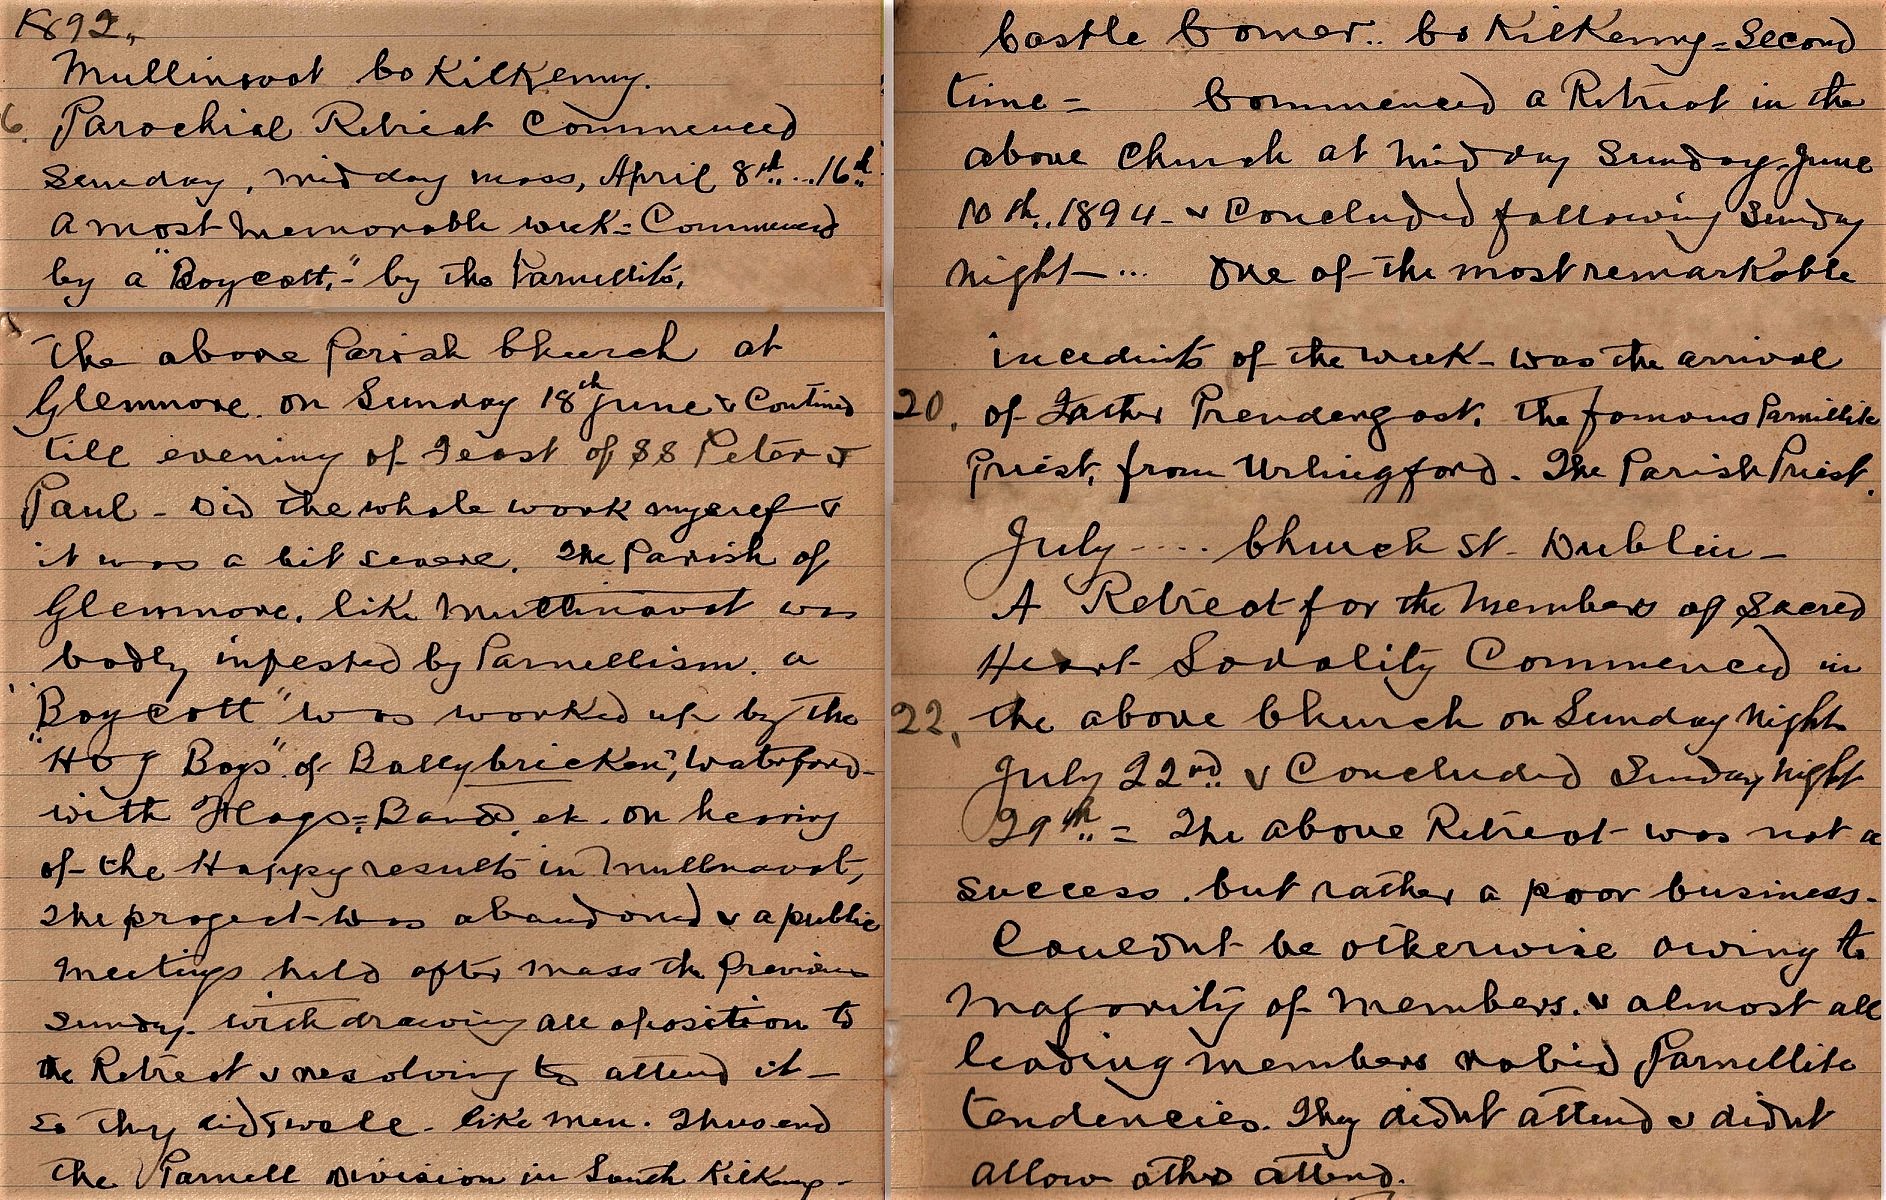 1892.
Mullinavat Co Kilkenny.
6. Parochial Retreat Commenced
Sunday, mid day mass, April 8th...16th
A most memorable week = Commenced
by a "Boycott," - by the Parnellites.
The above Parish Church at
Glenmore. on Sunday 18th June & Contined
till evening of Feast of SS Peter &
Paul - Did the whole work myself &
it was a bit severe. The Parish of
Glenmore, like Mullinavat was
badly infested by Parnellism. a
"Boycott" was worked up by the
"Hog Boys" of Ballybricken, Waterford -
with Flags = Band, etc. on hearing
of the Happy results in Mullinavat,
The project was abandoned & a public
meetings held after Mass the previous
Sunday. withdrawing all oposition to
the Retreat & resolving to attend it -
So they did & well - like men. Thus end
the Parnell Division in South Kilkenny -
Castle Comer.. Co Kilkenny = Second
time = Commenced a Retreat in the
above Church at mid day Sunday June
10th.. 1894 - & Concluded following Sunday
night - ... One of the most remarkable
incidents of the week - was the arrival
20. of Father Prendergast. the famous Parnellite
Priest, from Urlingford. The Parish Priest.
July .... Church St - Dublin -
A Retreat for the members of Sacred
Heart Sodality Commenced in
22. the above Church on Sunday night
July 22nd.. & Concluded Sunday night
29th.. = The above Retreat was not a
success. but rather a poor business -
Couldnt be otherwise owing to
majority of members. & almost all
leading members rabid Parnellite
tendencies. They didnt attend & didnt
allow others attend.